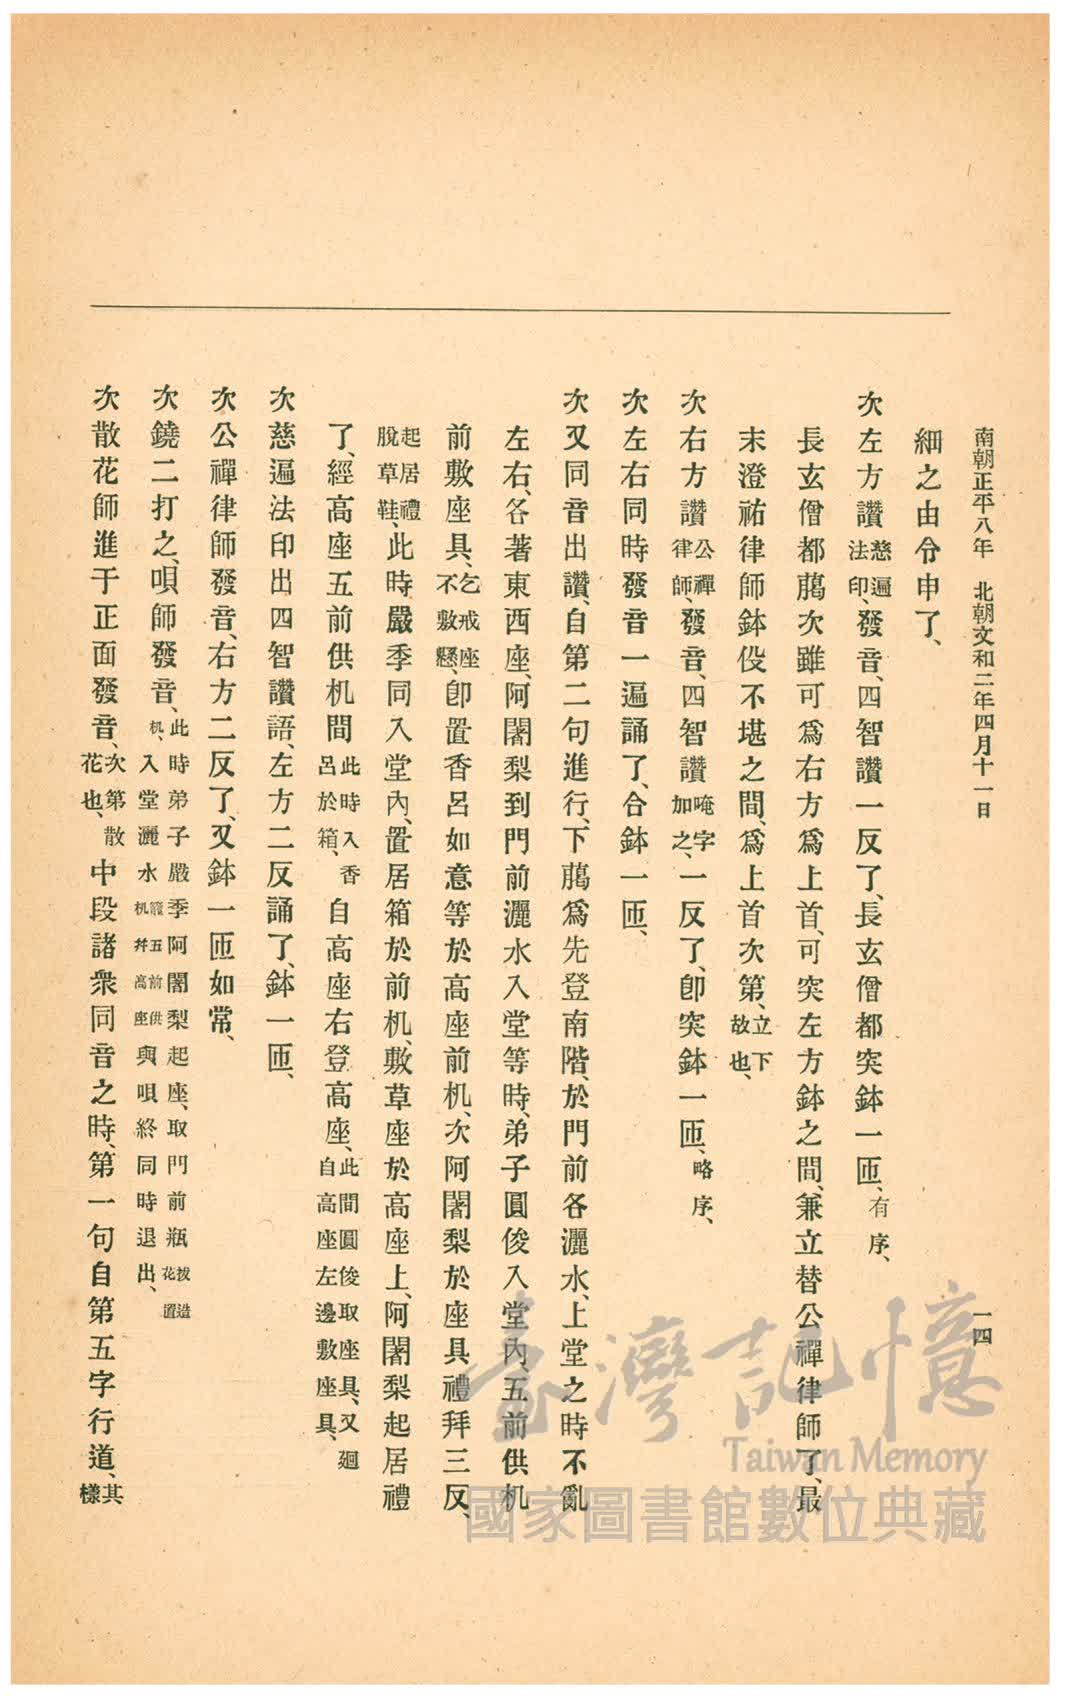 南朝正平八年　北朝文和二年四月十一日
一四
細之由令申了、
次左方讃慈遍法印、發音、四智讃一反了、長玄僧都突鉢一匝、有序、
長玄僧都﨟次雖可爲右方爲上首、可突左方鉢之間、兼立替公禪律師了、最
末澄祐律師鉢伇不堪之間、爲上首次第、立下故也、
次右方讃公禪律師、發音、四智讃唵字加之、一反了、卽突鉢一匝、略序、
次左右同時發音一遍誦了、合鉢一匝、
次又同音出讃、自第二句進行、下﨟爲先登南階、於門前各灑水、上堂之時不亂
左右、各著東西座、阿闍梨到門前灑水入堂等時、弟子圓俊入堂內、五前供机
前敷座具、乞戒座不敷懸、卽置香呂如意等於高座前机、次阿闍梨於座具禮拜三反、
起居禮脫草鞋、此時、嚴季同入堂內、置居箱於前机、敷草座於高座上、阿闍梨起居禮
了、經高座五前供机間此時入香呂於箱、自高座右登高座、此間圓俊取座具、又廻自高座左邊敷座具、
次慈遍法印出四智讃語、左方二反誦了、鉢一匝、
次公禪律師發音、右方二反了、又鉢一匝如常、
次鐃二打之、唄師發音、此時弟子嚴季阿闍梨起座、取門前瓶拔造花置机、入堂灑水籠五前供机幷高座與唄終同時退出、
次散花師進于正面發音、次第散花也、中段諸衆同音之時、第一句自第五字行道、其樣
臺灣記憶
Taiwan Memory
國家圖書館數位典藏